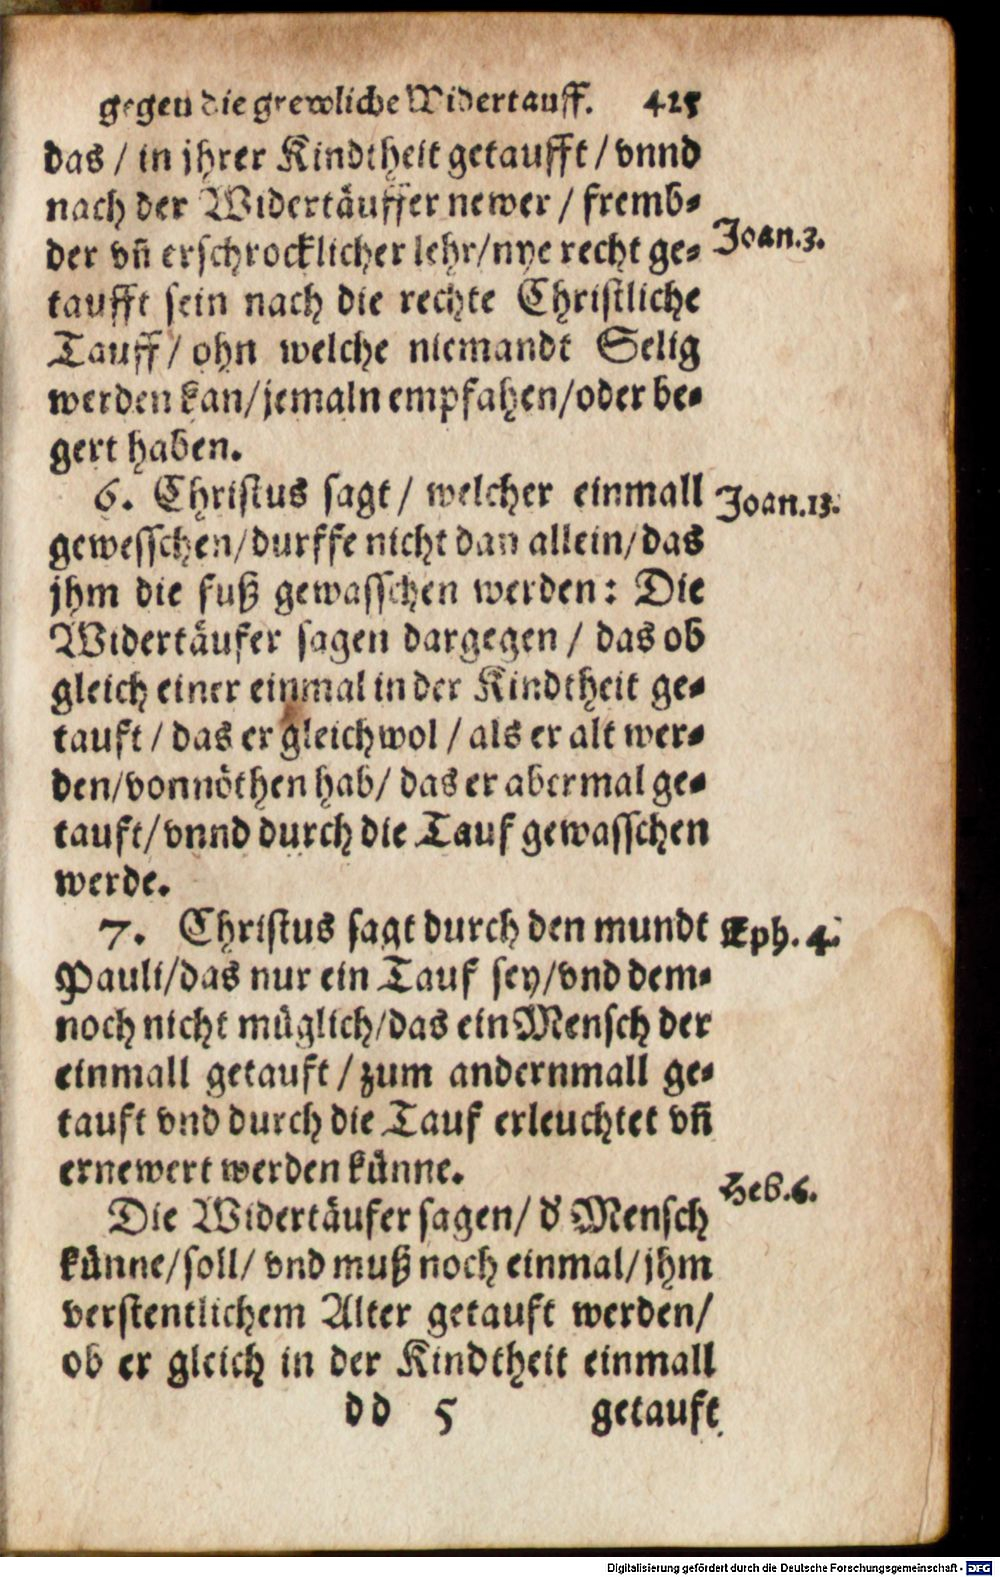 gegen die grewliche Widertauff. 425
das / in jhrer Kindtheit getaufft / vnnd
nach der Widertäuffer newer / fremb⸗
der vn̄ erschrocklicher lehr/nye recht ge⸗
Joan.3.
taufft sein nach die rechte Christliche
Tauff/ ohn welche niemandt Selig
werden kan/jemaln empfahen/oder be⸗
gert haben.
6. Christus sagt / welcher einmall
Joan.13.
gewesschen/durffe nicht dan allein/das
jhm die fuß gewasschen werden: Die
Widertäufer sagen dargegen / das ob
gleich einer einmal in der Kindtheit ge⸗
tauft / das er gleichwol / als er alt wer⸗
den/vonnöthen hab/ das er abermal ge⸗
tauft/vnnd durch die Tauf gewasschen
werde.
7. Christus sagt durch den mundt
Eph. 4.
Pauli/das nur ein Tauf sey/vnd dem⸗
noch nicht müglich/das ein Mensch der
einmall getauft / zum andernmall ge⸗
tauft vnd durch die Tauf erleuchtet vn̄
ernewert werden künne.
Heb.6.
Die Widertäufer sagen/ d' Mensch
künne/soll/ vnd muß noch einmal/jhm
verstentlichem Alter getauft werden/
ob er gleich in der Kindtheit einmall
dd 5 getauft
Digitalisierung gefördert durch die Deutsche Forschungsgemeinschaft - DFG